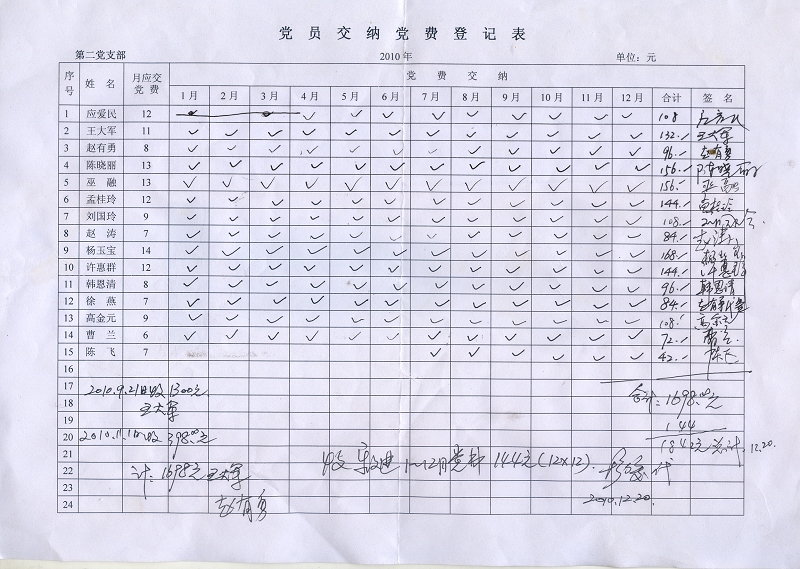 党员交纳党费登记表
第二党支部 2010年 单位：元
序号 姓名 月应交党费 党费交纳 合计 签名
1月 2月 3月 4月 5月 6月 7月 8月 9月 10月 11月 12月
1 应爱民 12 ✓ ✓ ✓ ✓ ✓ ✓ ✓ ✓ ✓ 108
2 王大军 11 ✓ ✓ ✓ ✓ ✓ ✓ ✓ ✓ ✓ ✓ ✓ ✓ 132.- 王大军
3 赵有勇 8 ✓ ✓ ✓ ✓ ✓ ✓ ✓ ✓ ✓ ✓ ✓ ✓ 96.- 赵有勇
4 陈晓丽 13 ✓ ✓ ✓ ✓ ✓ ✓ ✓ ✓ ✓ ✓ ✓ ✓ 156.- 陈晓丽
5 巫融 13 ✓ ✓ ✓ ✓ ✓ ✓ ✓ ✓ ✓ ✓ ✓ ✓ 156.- 巫融
6 孟桂玲 12 ✓ ✓ ✓ ✓ ✓ ✓ ✓ ✓ ✓ ✓ ✓ ✓ 144.- 孟桂玲
7 刘国玲 9 ✓ ✓ ✓ ✓ ✓ ✓ ✓ ✓ ✓ ✓ ✓ ✓ 108.-
8 赵涛 7 ✓ ✓ ✓ ✓ ✓ ✓ ✓ ✓ ✓ ✓ ✓ ✓ 84.- 赵涛
9 杨玉宝 14 ✓ ✓ ✓ ✓ ✓ ✓ ✓ ✓ ✓ ✓ ✓ ✓ 168.-
10 许惠群 12 ✓ ✓ ✓ ✓ ✓ ✓ ✓ ✓ ✓ ✓ ✓ ✓ 144.- 许惠群
11 韩恩清 8 ✓ ✓ ✓ ✓ ✓ ✓ ✓ ✓ ✓ ✓ ✓ ✓ 96.- 韩恩清
12 徐燕 7 ✓ ✓ ✓ ✓ ✓ ✓ ✓ ✓ ✓ ✓ ✓ ✓ 84.- 赵有勇代
13 高金元 9 ✓ ✓ ✓ ✓ ✓ ✓ ✓ ✓ ✓ ✓ ✓ ✓ 108.- 高金元
14 曹兰 6 ✓ ✓ ✓ ✓ ✓ ✓ ✓ ✓ ✓ ✓ ✓ ✓ 72.- 曹兰
15 陈飞 7 ✓ ✓ ✓ ✓ ✓ ✓ 42.- 陈飞
16
17 2010.9.21日收1300元 合计：1698.00元
18 王大军
19 144
20 2010.11.1日收398.00元 1842元总计.12.20.
21 1~12月党费144元(12×12).
22 计：1698元 王大军
23 赵有勇 2010.12.20.
24